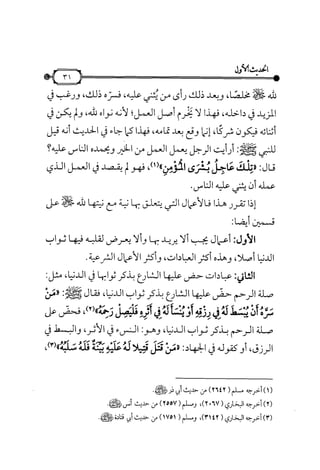 الحديث الأول
٣١
لله ﷻ مخلصًا، وبعد ذلك رأى من يُثني عليه، فسرّه ذلك، ورغب في
المزيد في داخله، فهذا لا يخرم أصل العمل؛ لأنه نواه لله، ولم يكن في
أثنائه فيكون شركًا، إنما وقع بعد تمامه، فهذا كما جاء في الحديث أنه قيل
للنبي ﷺ: أرأيت الرجل يعمل العمل من الخير ويحمده الناس عليه؟
قال: «تِلْكَ عَاجِلُ بُشْرَى الْمُؤْمِنِ»(١)، فهو لم يقصد في العمل الذي
عمله أن يثني عليه الناس.
إذا تقرر هذا فالأعمال التي يتعلق بها نية مع نيتها لله ﷻ على
قسمين أيضًا:
الأول: أعمال يجب ألا يريد بها وألا يعرض لقلبه فيها ثواب
الدنيا أصلا، وهذه أكثر العبادات، وأكثر الأعمال الشرعية.
الثاني: عبادات حض عليها الشارع بذكر ثوابها في الدنيا، مثل:
صلة الرحم حضّ عليها الشارع بذكر ثواب الدنيا، فقال ﷺ: «مَنْ
سَرَّهُ أَنْ يُبْسَطَ لَهُ فِي رِزْقِهِ أَوْ يُنْسَأَ لَهُ فِي أَثَرِهِ فَلْيَصِلْ رَحِمَهُ»(٢)، فحضّ على
صلة الرحم بذكر ثواب الدنيا، وهو: النسء في الأثر، والبسط في
الرزق، أو كقوله في الجهاد: «مَنْ قَتَلَ قَتِيلا لَهُ عَلَيْهِ بَيِّنَةٌ فَلَهُ سَلَبُهُ»(٣)،
(١) أخرجه مسلم (٢٦٤٢) من حديث أبي ذر ﷺ.
(٢) أخرجه البخاري (٢٠٦٧)، ومسلم (٢٥٥٧) من حديث أنس
(٣) أخرجه البخاري (٣١٤٢)، ومسلم (١٧٥١) من حديث أبي قتادة